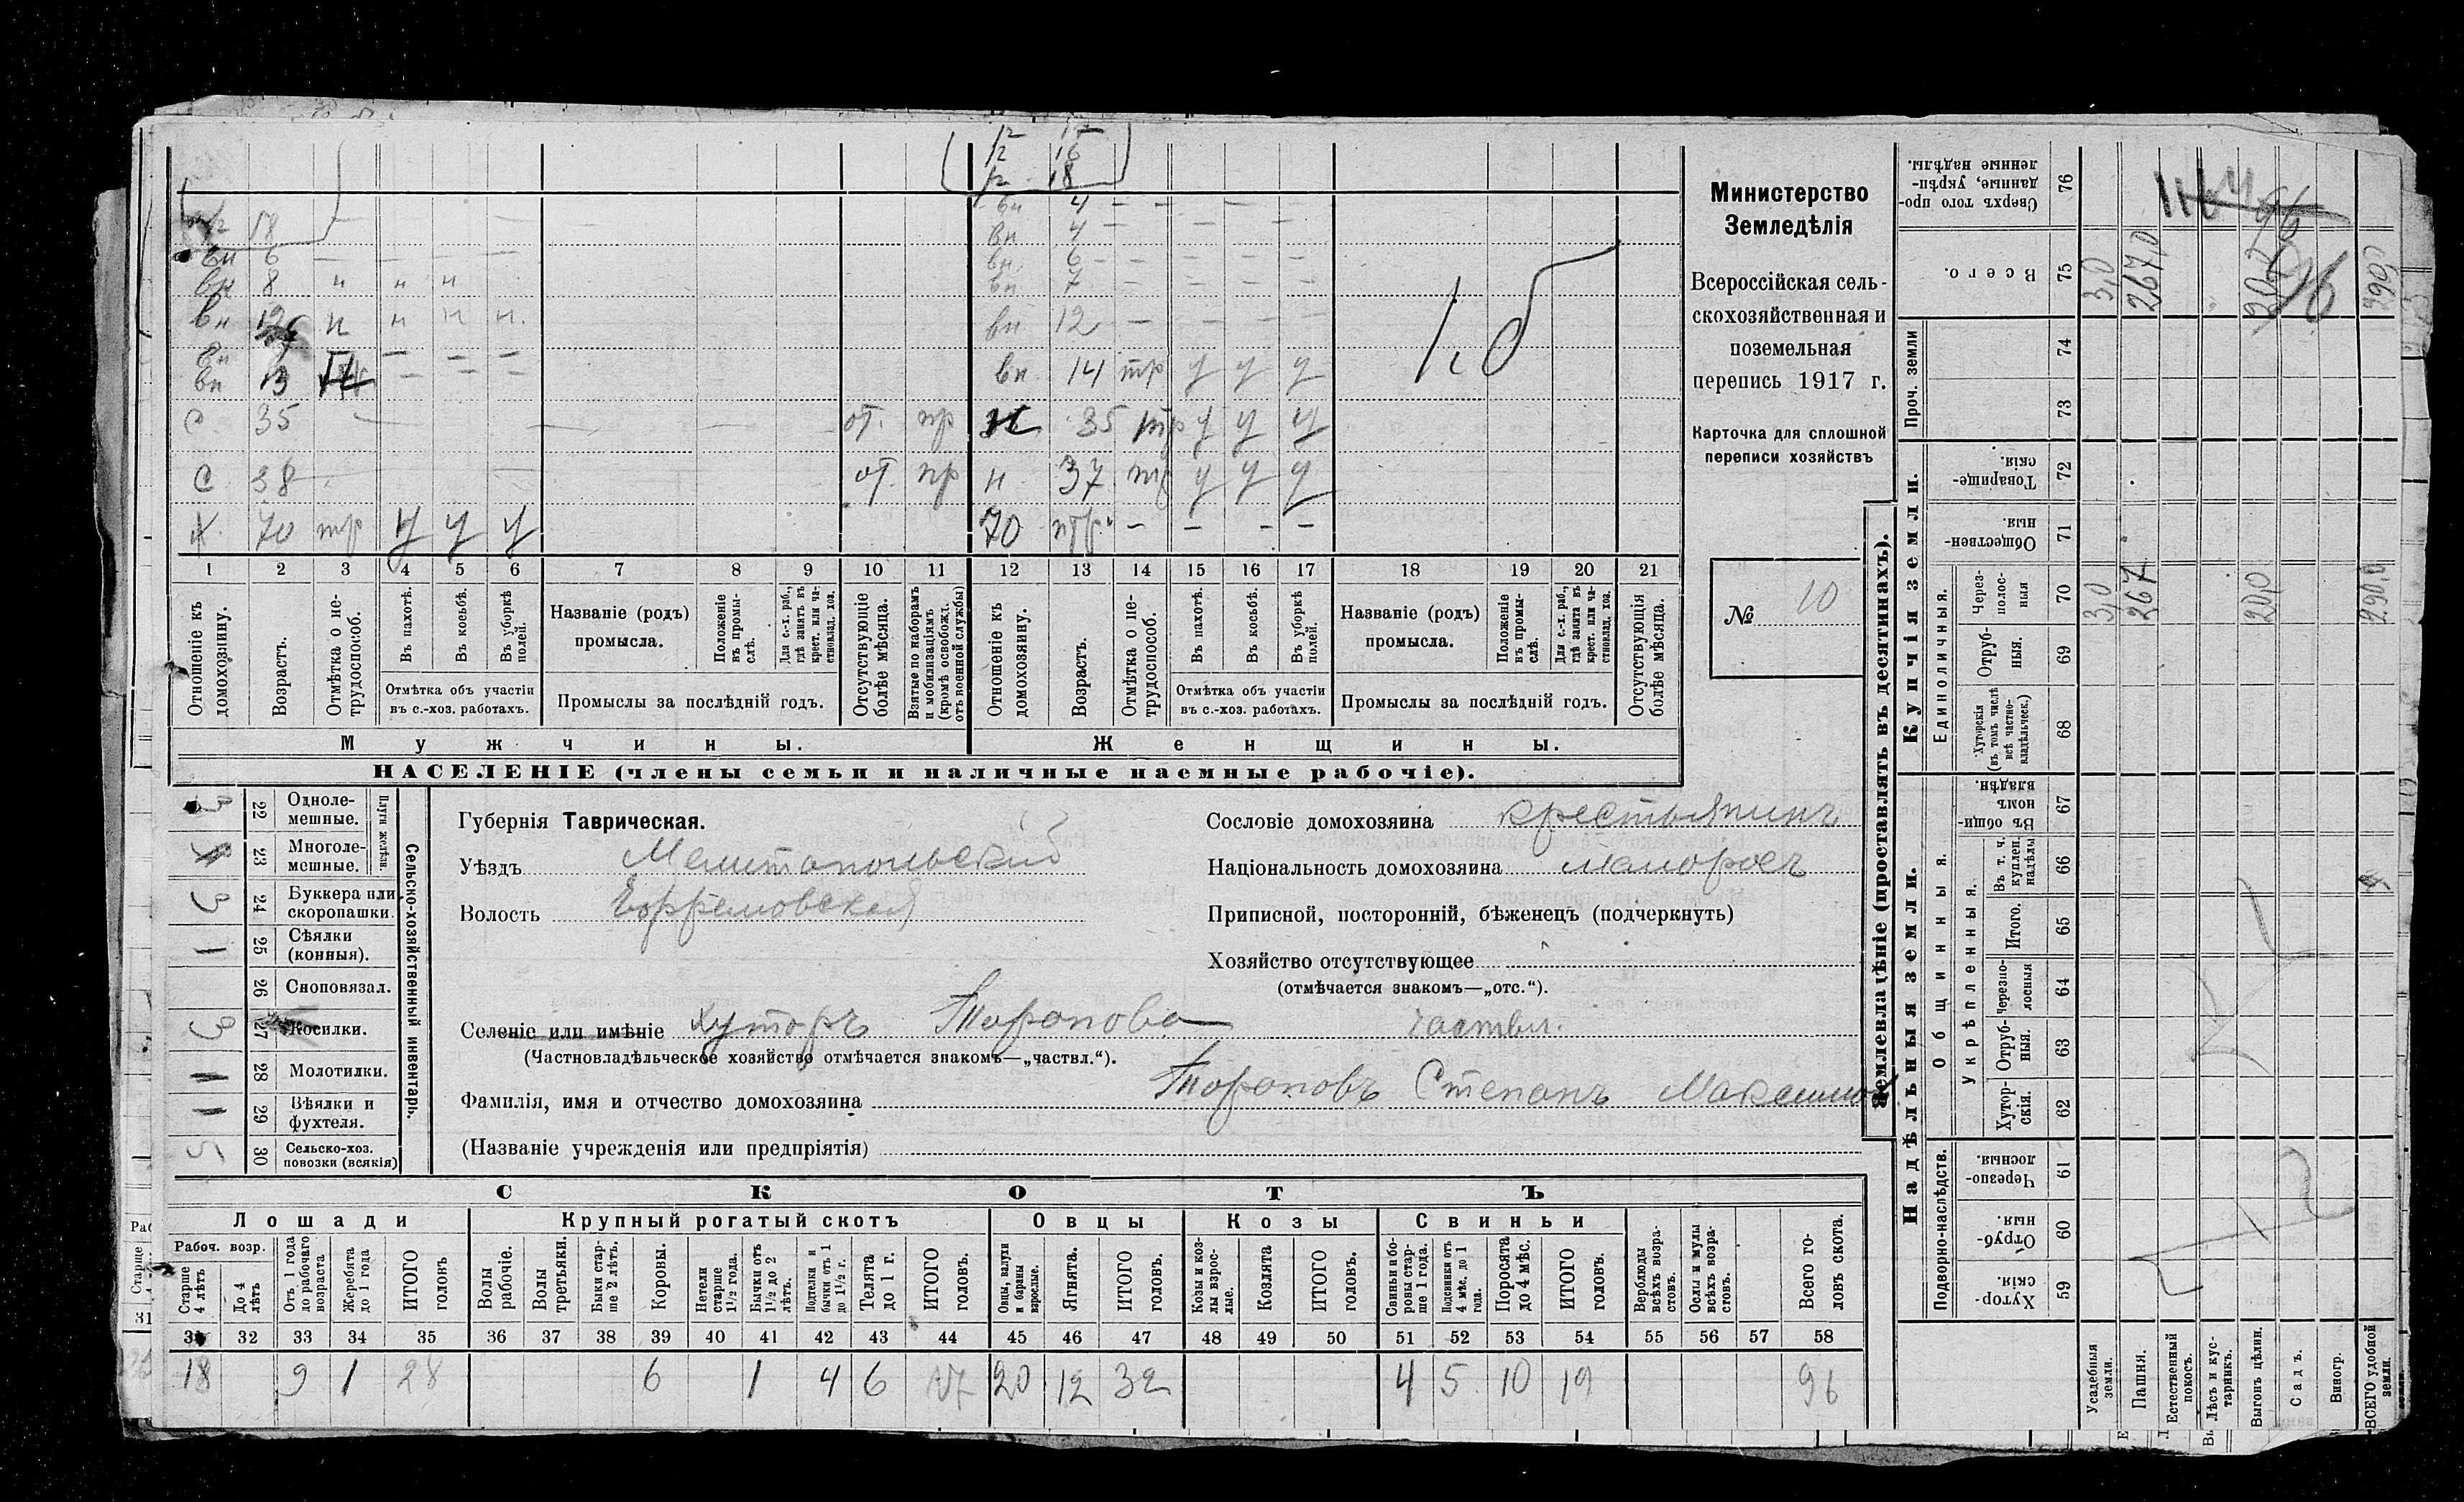 12 15
12 16
12 18
18
вн 6 — — — —
вн 8 " " "
вн 12 н н н н.
вн
вп 13
С 35 — от. пр
С 38 — от. пр
Х. 70 тр у у у
вн 4 — — — —
вн 4 — — — —
вн. 6 — — — —
вн. 7 — — — —
вн 12 — — — —
вн. 14 тр у у у
35 тр у у у
н 37 тр у у у
70 — — — —
10
1 2 3 4 5 6 7 8 9 10 11 12 13 14 15 16 17 18 19 20 21
Отношеніе къ домохозяину.
Возрастъ.
Отмѣтка о нетрудоспособ.
Въ пахотѣ.
Въ косьбѣ.
Въ уборкѣ полей.
Отмѣтка объ участіи
въ с.-хоз. работахъ.
Названіе (родъ)
промысла.
Положеніе въ промыслѣ.
Для с.-х. раб., гдѣ занятъ въ крест. или частновлад. хоз.
Промыслы за послѣдній годъ.
Отсутствующіе болѣе мѣсяца.
Взятые по наборамъ и мобилизаціямъ (кромѣ освобожд. отъ военной службы)
Отношеніе къ домохозяину.
Возрастъ.
Отмѣтка о нетрудоспособ.
Въ пахотѣ.
Въ косьбѣ.
Въ уборкѣ полей.
Отмѣтка объ участіи
въ с.-хоз. работахъ.
Названіе (родъ)
промысла.
Положеніе въ промыслѣ.
Для с.-х. раб., гдѣ занята въ крест. или частновлад. хоз.
Промыслы за послѣдній годъ.
Отсутствующія болѣе мѣсяца.
Мужчины. Женщины.
НАСЕЛЕНІЕ (члены семьи и наличные наемные рабочіе).
Министерство
Земледѣлія
Всероссійская сель-
скохозяйственная и
поземельная
перепись 1917 г.
Карточка для сплошной
переписи хозяйствъ
№ 10
Сельско-хозяйственный инвентарь.
Плуги желѣзн.
3 22 Одноле-
мешные.
23 Многоле-
мешные.
3 24 Буккера или
скоропашки.
1 25 Сѣялки
(конныя).
26 Сноповязал.
3 27 Косилки.
1 28 Молотилки.
1 29 Вѣялки и
фухтеля.
5 30 Сельско-хоз.
повозки (всякія)
Губернія Таврическая.
Уѣздъ Мелитопольскій
Волость Ефремовская
Селеніе или имѣніе хуторъ Торопова частвл.
(Частновладѣльческое хозяйство отмѣчается знакомъ—„частвл.“).
Фамилія, имя и отчество домохозяина Тороповъ Степанъ Максимов
(Названіе учрежденія или предпріятія)
Сословіе домохозяина крестьянинъ
Національность домохозяина малороссъ
Приписной, посторонній, бѣженецъ (подчеркнуть)
Хозяйство отсутствующее
(отмѣчается знакомъ—„отс.“).
СКОТЪ
Лошади Крупный рогатый скотъ Овцы Козы Свиньи
Рабоч. возр.
Старше 4 лѣтъ
До 4 лѣтъ
Отъ 1 года до рабочаго возраста
Жеребята до 1 года
ИТОГО головъ
Волы рабочіе.
Волы третьяки.
Быки старше 2 лѣтъ.
Коровы.
Нетели старше 1½ года.
Бычки отъ 1½ до 2 лѣтъ.
Подтелки и бычки отъ 1 до 1½ г.
Телята до 1 г.
ИТОГО головъ.
Овцы, валухи и бараны взрослые.
Ягнята.
ИТОГО головъ.
Козы и козлы взрослые.
Козлята
ИТОГО головъ.
Свиньи и боровы старше 1 года.
Подсвинки отъ 4 мѣс. до 1 года.
Поросята до 4 мѣс.
ИТОГО головъ.
Верблюды всѣхъ возрастовъ.
Ослы и мулы всѣхъ возрастовъ.
Всего головъ скота.
31 32 33 34 35 36 37 38 39 40 41 42 43 44 45 46 47 48 49 50 51 52 53 54 55 56 57 58
18 9 1 28 6 1 4 6 17 20 12 32 4 5 10 19 96
Землевладѣніе (проставлять въ десятинахъ).
Надѣльныя земли. Купчія земли.
Проч. земли
Подворно-наслѣдств.
Общинныя.
Укрѣпленныя.
Единоличныя.
Хуторскія. 59
Отрубныя. 60
Черезполосныя. 61
Хуторскія. 62
Отрубныя. 63
Черезполосныя 64
Итого. 65
Въ т. ч. куплен. надѣлы 66
Въ общинномъ владѣн. 67
Хуторскія (въ томъ числѣ всѣ частновладѣльческ.) 68
Отрубныя. 69
Черезполосныя 70
Общественныя. 71
Товарищескія. 72
73
74
Всего. 75
Сверхъ того проданные, укрѣпленные надѣлы. 76
Усадебныя земли. 3,0 3,0
Пашня. 267 267,0
Естественный покосъ.
Лѣсъ и кустарникъ.
Выгонъ цѣлин. 20,0 20,0
Садъ.
Виногр.
ВСЕГО удобной земли. 290,0 290,0
96
Старше
31